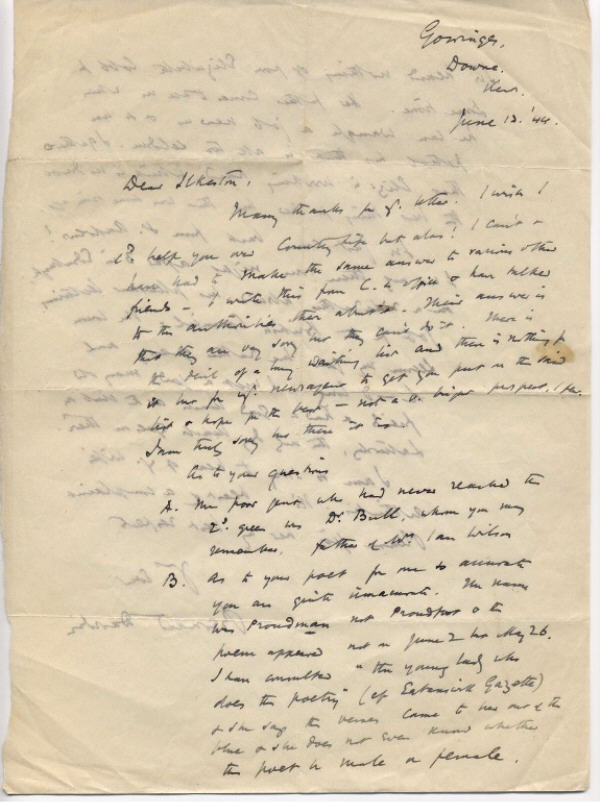 Gorringes,
Downe.
Kent.
June 13. '44.
Dear Ilkeston,
Many thanks for yr. letter. I wish I
cd help you over Country Life but alas! I can't &
have had to make the same answer to various other
friends – I write this from C. L. Office & have talked
to the authorities there about it. Their answer is
that they are very sorry but they can't do it. There is
the devil of a long waiting list and there is nothing for
it but for yr. newsagent to get you put on the said
list & hope for the best – not a v. bright prospect, I fear.
I am truly sorry but there it is.
As to your questions
A. The poor gent who had never reached the
2d. green was Dr. Bull, whom you may
remember, father of Mrs Ian Wilson
B. As to your poet for one so accurate
you are quite inaccurate. The name
was Proudman not Proudfoot & the
poem appeared not on June 2 but May 26.
I have consulted "the young lady who
does the poetry" (cf Eatanswill Gazette)
& she says the verses came to her out of the
blue & she does not even know whether
the poet be male or female.